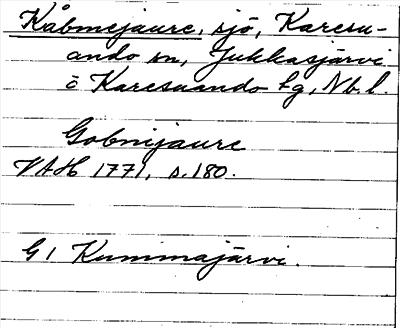 Kåbmejaure, sjö, Karesu-
ando sn, Jukkasjärvi
o Karesuando tg, Nb. l.
Gobmijaure
VAH 1771, s. 180.
G1 Kummajärvi.